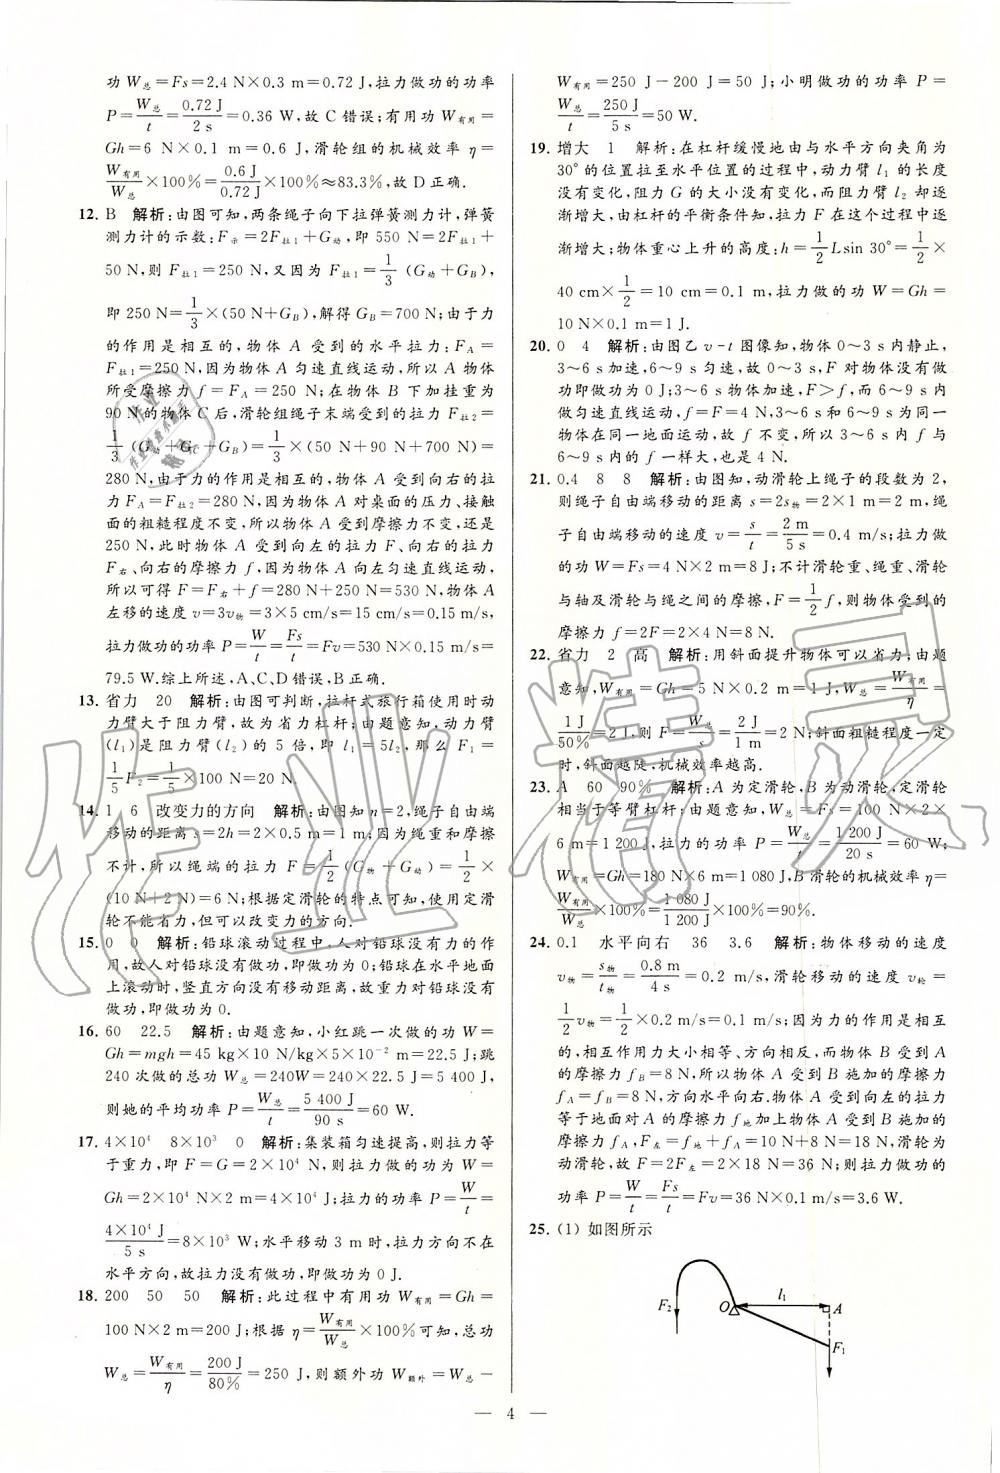 功W总=Fs=2.4 N×0.3 m=0.72 J,拉力做功的功率
P=W总/t=0.72 J/2 s=0.36 W,故C错误;有用功W有用=
Gh=6 N×0.1 m=0.6 J,滑轮组的机械效率η=
W有用/W总×100%=0.6 J/0.72 J×100%≈83.3%,故D正确.
12. B 解析:由图可知,两条绳子向下拉弹簧测力计,弹簧
测力计的示数:F示=2F拉1+G动,即550 N=2F拉1+
50 N,则F拉1=250 N,又因为F拉1=1/3(G动+GB),
即250 N=1/3×(50 N+GB),解得GB=700 N;由于力
的作用是相互的,物体A受到的水平拉力:FA=
F拉1=250 N,因为物体A匀速直线运动,所以A物体
所受摩擦力f=FA=250 N;在物体B下加挂重为
90 N的物体C后,滑轮组绳子末端受到的拉力F拉2=
1/3(G动+GC+GB)=1/3×(50 N+90 N+700 N)=
280 N,由于力的作用是相互的,物体A受到向右的拉
力FA=F拉2=280 N,因为物体A对桌面的压力、接触
面的粗糙程度不变,所以物体A受到摩擦力不变,还是
250 N,此时物体A受到向左的拉力F、向右的拉力
F右、向右的摩擦力f,因为物体A向左匀速直线运动,
所以可得F=F右+f=280 N+250 N=530 N,物体A
左移的速度v=3v物=3×5 cm/s=15 cm/s=0.15 m/s,
拉力做功的功率P=W/t=Fs/t=Fv=530 N×0.15 m/s=
79.5 W.综上所述,A、C、D错误,B正确.
13. 省力 20 解析:由图可判断,拉杆式旅行箱使用时动
力臂大于阻力臂,故为省力杠杆;由题意知,动力臂
(l1)是阻力臂(l2)的5倍,即l1=5l2,那么F1=
1/5F2=1/5×100 N=20 N.
14. 1 6 改变力的方向 解析:由图知n=2,绳子自由端
移动的距离s=2h=2×0.5 m=1 m;因为绳重和摩擦
不计,所以绳端的拉力F=1/2(G物+G动)=1/2×
(10 N+2 N)=6 N;根据定滑轮的特点可知,使用定滑
轮不能省力,但可以改变力的方向.
15. 0 0 解析:铅球滚动过程中,人对铅球没有力的作
用,故人对铅球没有做功,即做功为0;铅球在水平地面
上滚动时,竖直方向没有移动距离,故重力对铅球没有
做功,即做功为0.
16. 60 22.5 解析:由题意知,小红跳一次做的功W=
Gh=mgh=45 kg×10 N/kg×5×10⁻² m=22.5 J;跳
240次做的总功W总=240W=240×22.5 J=5 400 J,
则她的平均功率P=W总/t=5 400 J/90 s=60 W.
17. 4×10⁴ 8×10³ 0 解析:集装箱匀速提高,则拉力等
于重力,即F=G=2×10⁴ N,则拉力做的功为W=
Gh=2×10⁴ N×2 m=4×10⁴ J;拉力的功率P=W/t=
4×10⁴ J/5 s=8×10³ W;水平移动3 m时,拉力方向不在
水平方向,故拉力没有做功,即做功为0 J.
18. 200 50 50 解析:此过程中有用功W有用=Gh=
100 N×2 m=200 J;根据η=W有用/W总×100%可知,总功
W总=W有用/η=200 J/80%=250 J,则额外功W额外=W总-
W有用=250 J-200 J=50 J;小明做功的功率P=
W总/t=250 J/5 s=50 W.
19. 增大 1 解析:在杠杆缓慢地由与水平方向夹角为
30°的位置拉至水平位置的过程中,动力臂l1的长度
没有变化,阻力G的大小没有变化,而阻力臂l2却逐
渐增大,由杠杆的平衡条件知,拉力F在这个过程中逐
渐增大;物体重心上升的高度:h=1/2Lsin 30°=1/2×
40 cm×1/2=10 cm=0.1 m,拉力做的功W=Gh=
10 N×0.1 m=1 J.
20. 0 4 解析:由图乙v-t图像知,物体0～3 s内静止,
3～6 s加速,6～9 s匀速,故0～3 s,F对物体没有做
功即做功为0 J;3～6 s物体加速,F>f,而6～9 s内
做匀速直线运动,f=F=4 N,3～6 s和6～9 s为同一
物体在同一地面运动,故f不变,所以3～6 s内f与
6～9 s内的f一样大,也是4 N.
21. 0.4 8 8 解析:由图知,动滑轮上绳子的段数为2,
则绳子自由端移动的距离s=2s物=2×1 m=2 m,绳
子自由端移动的速度v=s/t=2 m/5 s=0.4 m/s;拉力做
的功W=Fs=4 N×2 m=8 J;不计滑轮重、绳重、滑轮
与轴及滑轮与绳之间的摩擦,F=1/2f,则物体受到的
摩擦力f=2F=2×4 N=8 N.
22. 省力 2 高 解析:用斜面提升物体可以省力;由题
意知,W有用=Gh=5 N×0.2 m=1 J,W总=W有用/η=
1 J/50%=2 J,则F=W总/s=2 J/1 m=2 N;斜面粗糙程度一定
时,斜面越陡,机械效率越高.
23. A 60 90% 解析:A为定滑轮,B为动滑轮,定滑轮
相当于等臂杠杆;由题意知,W总=Fs=100 N×2×
6 m=1 200 J,拉力的功率P=W总/t=1 200 J/20 s=60 W;
W有用=Gh=180 N×6 m=1 080 J,B滑轮的机械效率η=
W有用/W总×100%=1 080 J/1 200 J×100%=90%.
24. 0.1 水平向右 36 3.6 解析:物体移动的速度
v物=s物/t物=0.8 m/4 s=0.2 m/s,滑轮移动的速度v轮=
1/2v物=1/2×0.2 m/s=0.1 m/s;因为力的作用是相互
的,相互作用力大小相等、方向相反,而物体B受到A
的摩擦力fB=8 N,所以物体A受到B施加的摩擦力
fA=fB=8 N,方向水平向右.物体A受到向左的拉力
等于地面对A的摩擦力f地加上物体A受到B施加的
摩擦力fA,F左=f地+fA=10 N+8 N=18 N;滑轮为
动滑轮,故F=2F左=2×18 N=36 N;则拉力做功的
功率P=W/t=Fs/t=Fv=36 N×0.1 m/s=3.6 W.
25. (1) 如图所示
F2 O l1 A
F1
— 4 —
作业精灵